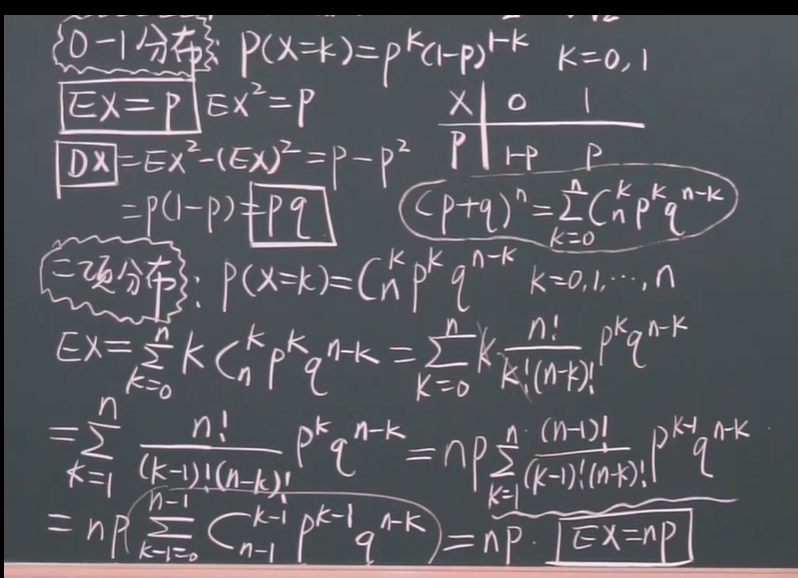 0-1分布: P(X=k)=p^k(1-p)^{1-k} k=0,1
EX=p EX²=p
X 0 1
P 1-p p
DX=EX²-(EX)²=p-p²
=p(1-p)=pq
(p+q)^n=∑_{k=0}^{n}C_n^k p^k q^{n-k}
二项分布: P(X=k)=C_n^k p^k q^{n-k} k=0,1,…,n
EX=∑_{k=0}^{n}k C_n^k p^k q^{n-k}=∑_{k=0}^{n}k n!/(k!(n-k)!) p^k q^{n-k}
=∑_{k=1}^{n} n!/((k-1)!(n-k)!) p^k q^{n-k}=np∑_{k=1}^{n} (n-1)!/((k-1)!(n-k)!) p^{k-1} q^{n-k}
=np∑_{k-1=0}^{n-1}C_{n-1}^{k-1} p^{k-1} q^{n-k}=np. EX=np